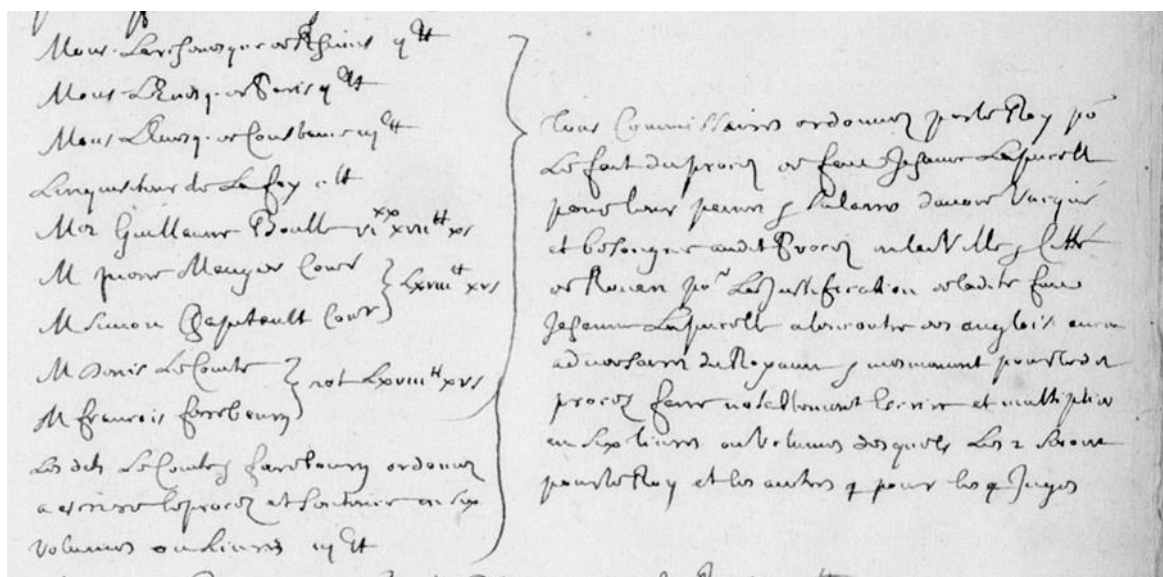 Mons. Larchevesque de Rheims iijc ₶
Mons. Levesq. de Paris iijc ₶
Mons. Levesq. de Constance iijc ₶
Linquisiteur de la foy c ₶
Mer Guillaume Bouille vi xx xvii ₶ x s
M pierre Mauger Cons
M Simon Chapitault Cons
lxviii ₶ xv s
M Denis Le Comte
M francois ferrebourg
not lxviii ₶ xv s
Les dits Le Comte & ferrebourg ordonnez
a escrire le procez et sentence en six
volumes ou livres iijc ₶
tous Commissaires ordonnez par le Roy po
Le fait du procez de feue Jehanne Lapucelle
pour leur peines & salaires davoir vacque
et besongne audit Procez en la Ville & Citté
de Rouen por La Justification de ladite feue
Jehanne Lapucelle a lencontre des anglois anciens
adversaires du Royaume & mesmement pour ledit
procez faire notablement escrire et multiplier
en six livres ou volumes desquels Les 2 seront
pour le Roy et les autres 4 pour les 4 Juges